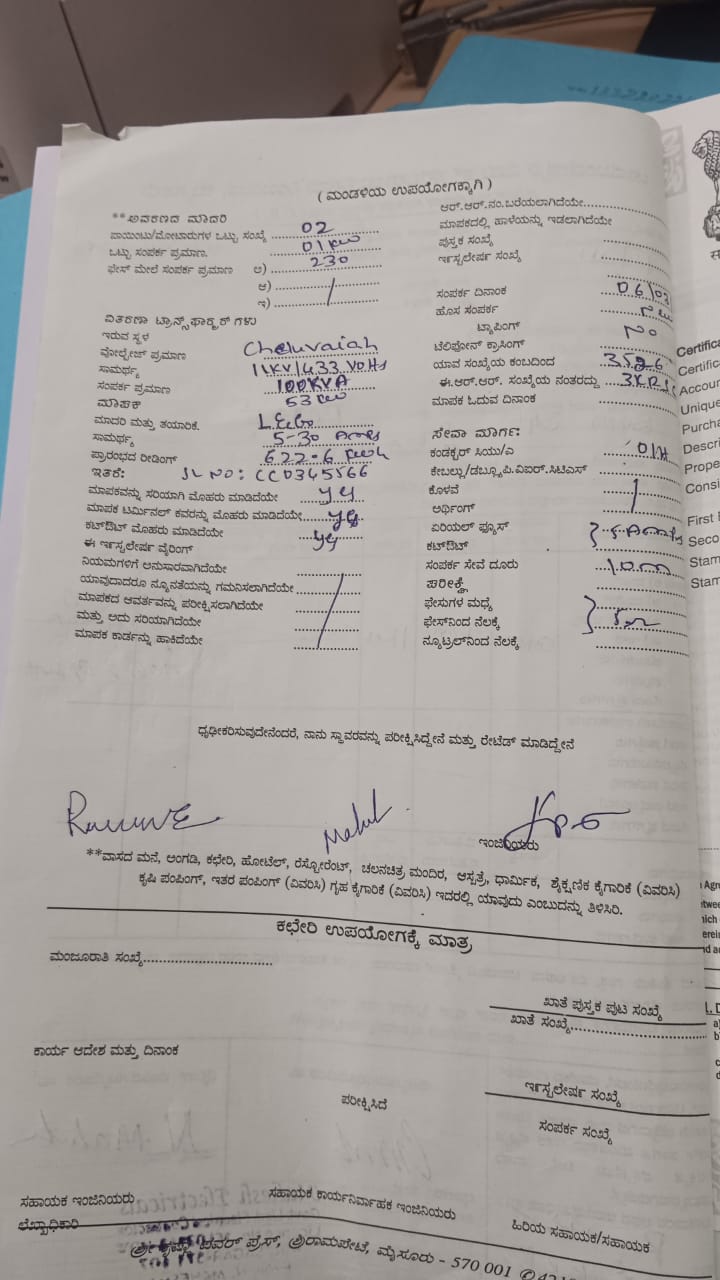 ( ಮಂಡಳಿಯ ಉಪಯೋಗಕ್ಕಾಗಿ )
**ಅವತರಣದ ಮಾದರಿ
ಪಾಯಿಂಟು/ಮೋಟಾರುಗಳ ಒಟ್ಟು ಸಂಖ್ಯೆ 02
ಒಟ್ಟು ಸಂಪರ್ಕ ಪ್ರಮಾಣ. 01 KW
ಫೇಸ್ ಮೇಲೆ ಸಂಪರ್ಕ ಪ್ರಮಾಣ ಅ) 230
ಆ)
ಇ)
ವಿತರಣಾ ಟ್ರಾನ್ಸ್‌ಫಾರ್ಮರ್‌ಗಳು
ಇರುವ ಸ್ಥಳ Cheluvaiah
ವೋಲ್ಟೇಜ್ ಪ್ರಮಾಣ 11KV/433 Volts
ಸಾಮರ್ಥ್ಯ 100KVA
ಸಂಪರ್ಕ ಪ್ರಮಾಣ 53 KW
ಮಾಪಕ
ಮಾದರಿ ಮತ್ತು ತಯಾರಿಕೆ.
ಸಾಮರ್ಥ್ಯ 5-30 Amps
ಪ್ರಾರಂಭದ ರೀಡಿಂಗ್ 622.6 KWh
ಇತರೆ: SL NO: CC0345566
ಮಾಪಕವನ್ನು ಸರಿಯಾಗಿ ಮೊಹರು ಮಾಡಿದೆಯೇ yes
ಮಾಪಕ ಟರ್ಮಿನಲ್ ಕವರನ್ನು ಮೊಹರು ಮಾಡಿದೆಯೇ yes
ಕಟ್‌ಔಟ್ ಮೊಹರು ಮಾಡಿದೆಯೇ yes
ಈ ಇನ್ಸ್ಟಲೇಷನ್ ವೈರಿಂಗ್
ನಿಯಮಗಳಿಗೆ ಅನುಸಾರವಾಗಿದೆಯೇ
ಯಾವುದಾದರೂ ನ್ಯೂನತೆಯನ್ನು ಗಮನಿಸಲಾಗಿದೆಯೇ
ಮಾಪಕದ ಆವರ್ತವನ್ನು ಪರೀಕ್ಷಿಸಲಾಗಿದೆಯೇ
ಮತ್ತು ಅದು ಸರಿಯಾಗಿದೆಯೇ
ಮಾಪಕ ಕಾರ್ಡನ್ನು ಹಾಕಿದೆಯೇ
ಆರ್.ಆರ್.ನಂ.ಬರೆಯಲಾಗಿದೆಯೇ
ಮಾಪಕದಲ್ಲಿ ಹಾಳೆಯನ್ನು ಇಡಲಾಗಿದೆಯೇ
ಪುಸ್ತಕ ಸಂಖ್ಯೆ
ಇನ್ಸ್ಟಲೇಷನ್ ಸಂಖ್ಯೆ
ಸಂಪರ್ಕ ದಿನಾಂಕ 06/03
ಹೊಸ ಸಂಪರ್ಕ
ಟ್ಯಾಪಿಂಗ್ No
ಟೆಲಿಫೋನ್ ಕ್ರಾಸಿಂಗ್
ಯಾವ ಸಂಖ್ಯೆಯ ಕಂಬದಿಂದ
ಈ.ಆರ್.ಆರ್. ಸಂಖ್ಯೆಯ ನಂತರದ್ದು
ಮಾಪಕ ಓದುವ ದಿನಾಂಕ
ಸೇವಾ ಮಾರ್ಗ:
ಕಂಡಕ್ಟರ್ ಸಿಯು/ಎ OH
ಕೇಬಲ್ಲು/ಡಬ್ಲ್ಯೂಪಿ.ಐಆರ್.ಸಿಟಿಎಸ್
ಕೊಳವೆ
ಅರ್ಥಿಂಗ್
ಏರಿಯಲ್ ಫ್ಯೂಸ್ 5 Amps
ಕಟ್‌ಔಟ್
ಸಂಪರ್ಕ ಸೇವೆ ದೂರು
ಪರೀಕ್ಷೆ
ಫೇಸುಗಳ ಮಧ್ಯೆ
ಫೇಸ್‌ನಿಂದ ನೆಲಕ್ಕೆ
ನ್ಯೂಟ್ರಲ್‌ನಿಂದ ನೆಲಕ್ಕೆ
ಧೃಢೀಕರಿಸುವುದೇನೆಂದರೆ, ನಾನು ಸ್ಥಾವರವನ್ನು ಪರೀಕ್ಷಿಸಿದ್ದೇನೆ ಮತ್ತು ರೇಟೆಡ್ ಮಾಡಿದ್ದೇನೆ
ಇಂಜಿನಿಯರು
**ವಾಸದ ಮನೆ, ಅಂಗಡಿ, ಕಛೇರಿ, ಹೋಟೆಲ್, ರೆಸ್ಟೋರೆಂಟ್, ಚಲನಚಿತ್ರ ಮಂದಿರ, ಆಸ್ಪತ್ರೆ, ಧಾರ್ಮಿಕ, ಶೈಕ್ಷಣಿಕ ಕೈಗಾರಿಕೆ (ವಿವರಿಸಿ)
ಕೃಷಿ ಪಂಪಿಂಗ್, ಇತರ ಪಂಪಿಂಗ್ (ವಿವರಿಸಿ) ಗೃಹ ಕೈಗಾರಿಕೆ (ವಿವರಿಸಿ) ಇದರಲ್ಲಿ ಯಾವುದು ಎಂಬುದನ್ನು ತಿಳಿಸಿರಿ.
ಕಛೇರಿ ಉಪಯೋಗಕ್ಕೆ ಮಾತ್ರ
ಮಂಜೂರಾತಿ ಸಂಖ್ಯೆ
ಖಾತೆ ಪುಸ್ತಕ ಪುಟ ಸಂಖ್ಯೆ
ಖಾತೆ ಸಂಖ್ಯೆ
ಕಾರ್ಯ ಆದೇಶ ಮತ್ತು ದಿನಾಂಕ
ಇನ್ಸ್ಟಲೇಷನ್ ಸಂಖ್ಯೆ
ಪರೀಕ್ಷಿಸಿದೆ
ಸಂಪರ್ಕ ಸಂಖ್ಯೆ
ಸಹಾಯಕ ಇಂಜಿನಿಯರು
ಸಹಾಯಕ ಕಾರ್ಯನಿರ್ವಾಹಕ ಇಂಜಿನಿಯರು
ಹಿರಿಯ ಸಹಾಯಕ/ಸಹಾಯಕ
ಲೆಖ್ಖಾಧಿಕಾರಿ
ಪವರ್ ಪ್ರೆಸ್, ಶ್ರೀರಾಮಪೇಟೆ, ಮೈಸೂರು - 570 001
Certifica
Certific
Accour
Unique
Purcha
Descri
Prope
Consi
First
Seco
Stam
Stam